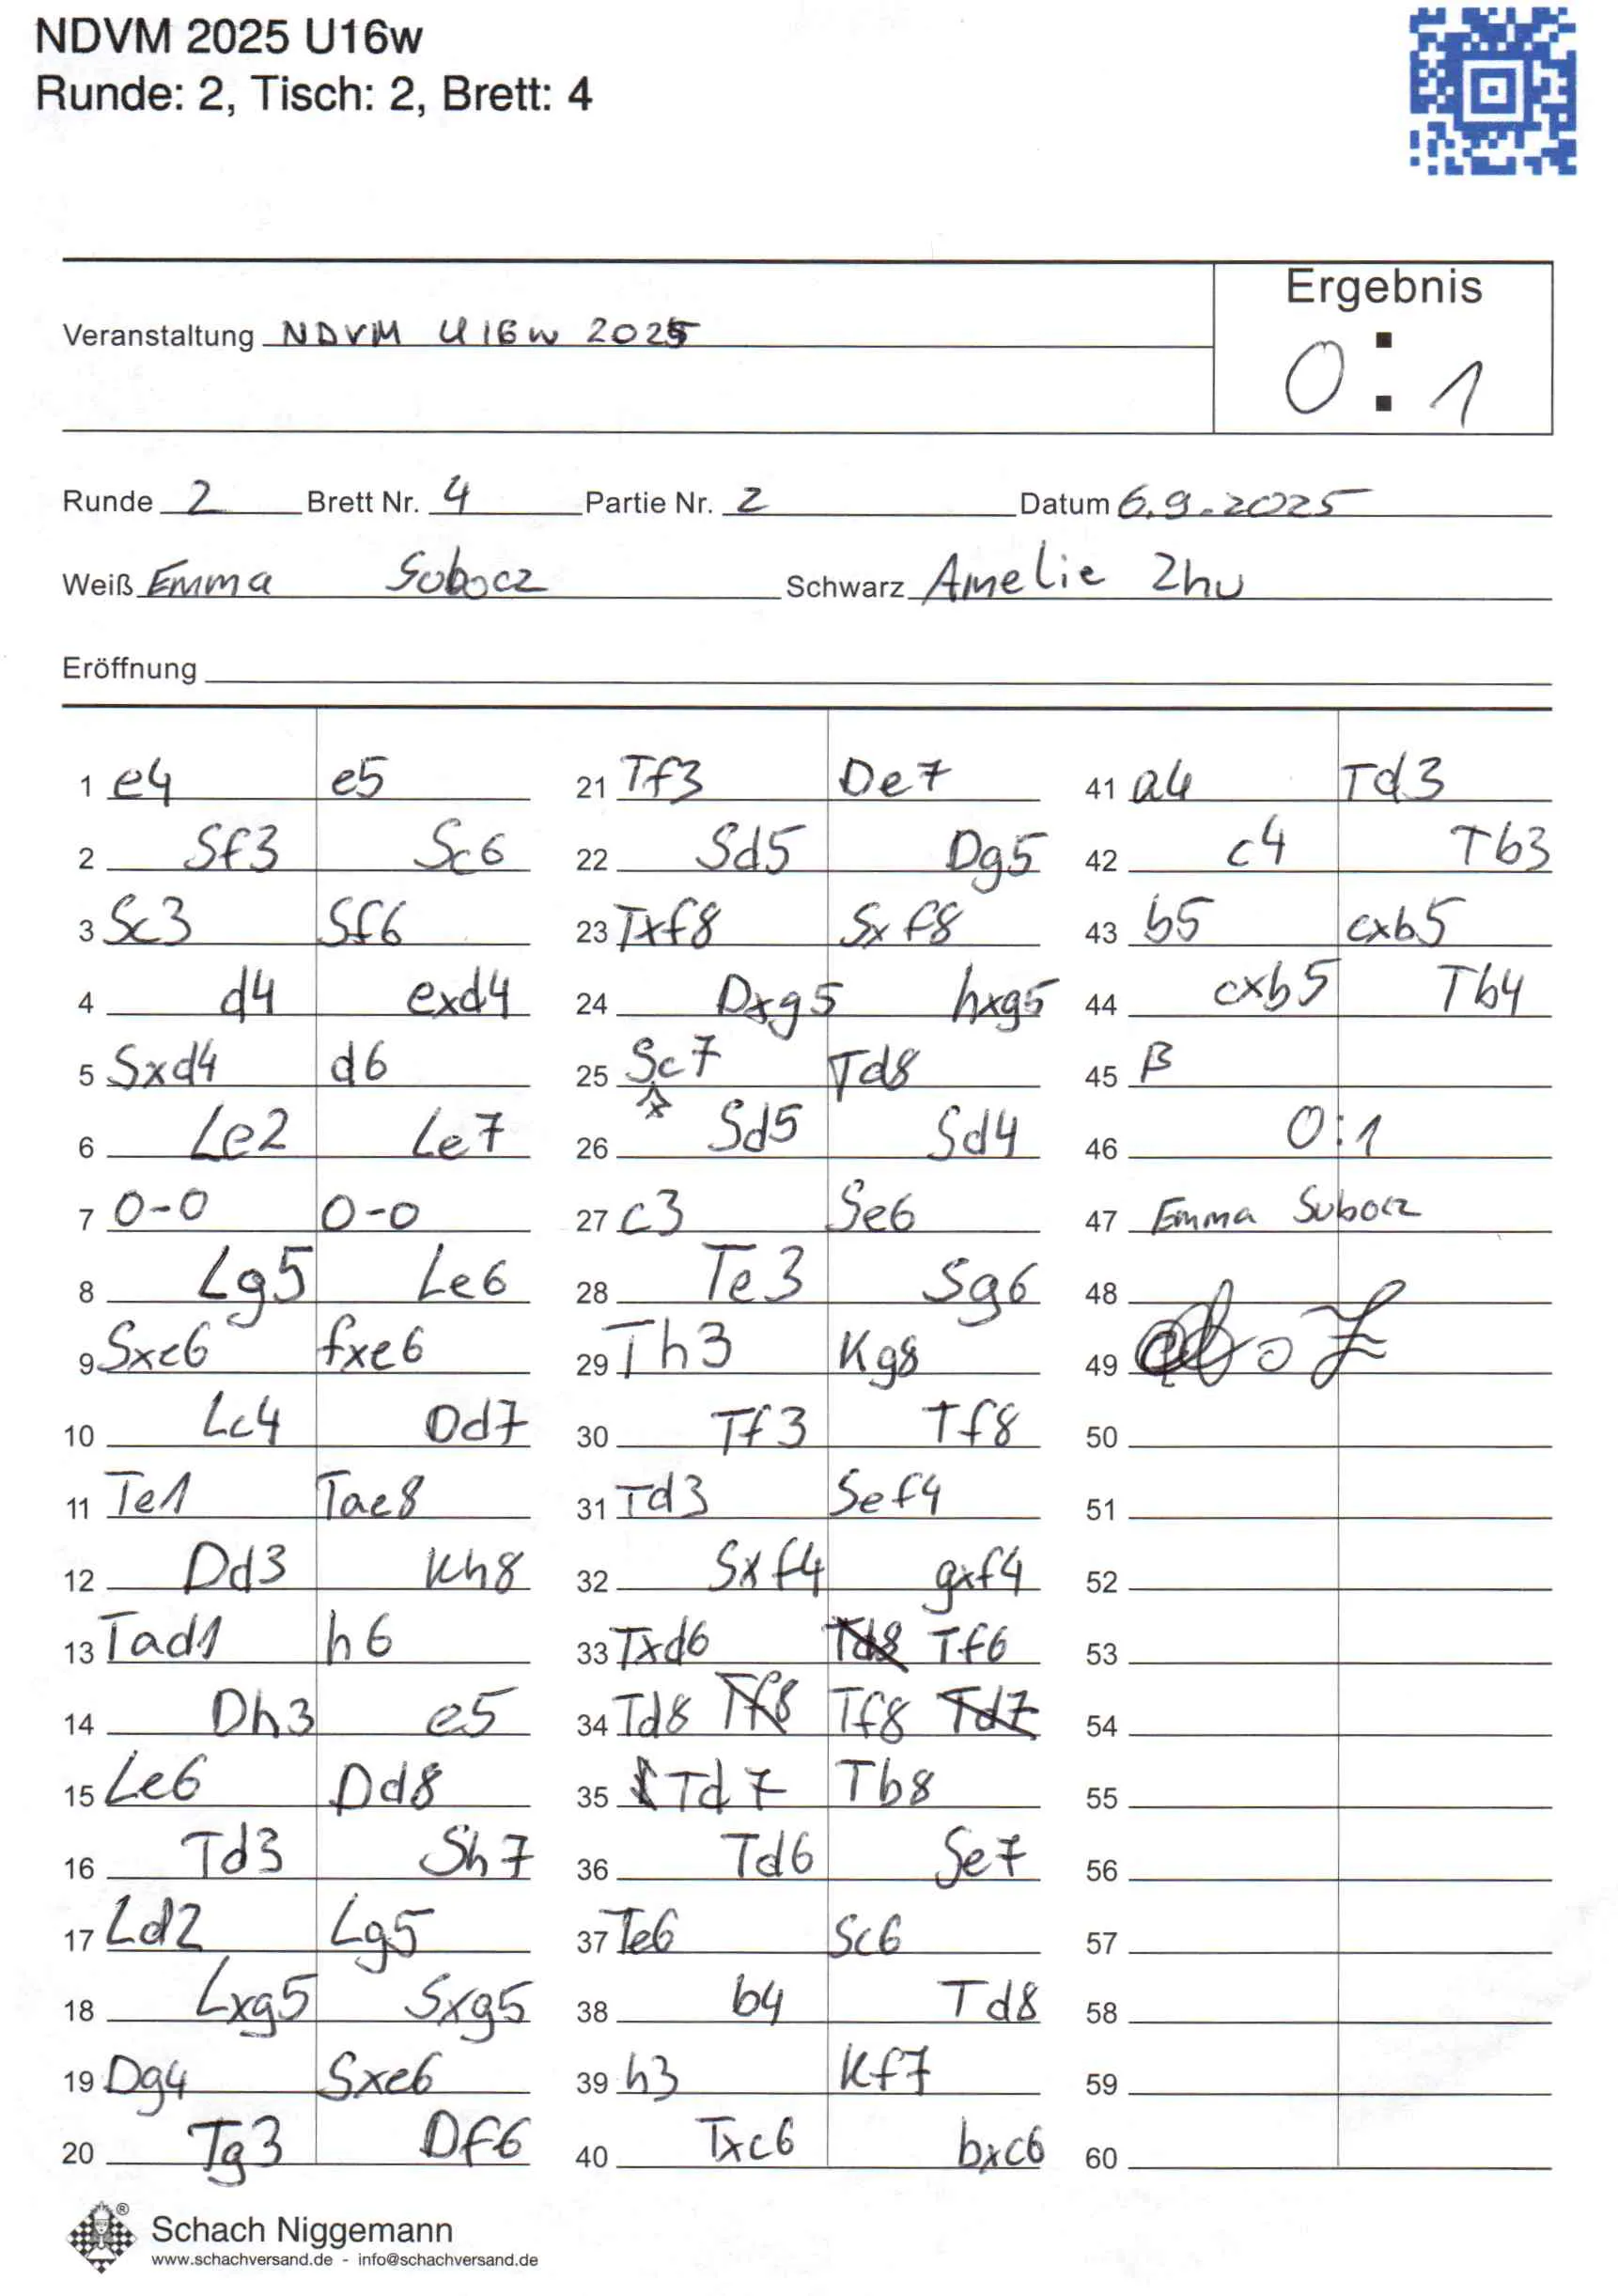 NDVM 2025 U16w
Runde: 2, Tisch: 2, Brett: 4
Ergebnis
Veranstaltung NDVM U16w 2025
0 : 1
Runde 2 Brett Nr. 4 Partie Nr. 2 Datum 6.9.2025
Weiß Emma Sobocz Schwarz Amelie Zhu
Eröffnung
1 e4 e5
2 Sf3 Sc6
3 Sc3 Sf6
4 d4 exd4
5 Sxd4 d6
6 Le2 Le7
7 0-0 0-0
8 Lg5 Le6
9 Sxe6 fxe6
10 Lc4 Dd7
11 Te1 Tae8
12 Dd3 Kh8
13 Tad1 h6
14 Dh3 e5
15 Le6 Dd8
16 Td3 Sh7
17 Ld2 Lg5
18 Lxg5 Sxg5
19 Dg4 Sxe6
20 Tg3 Df6
21 Tf3 De7
22 Sd5 Dg5
23 Txf8 Sxf8
24 Dxg5 hxg5
25 Sc7 Td8
26 Sd5 Sd4
27 c3 Se6
28 Te3 Sg6
29 Th3 Kg8
30 Tf3 Tf8
31 Td3 Sef4
32 Sxf4 gxf4
33 Txd6 Td8 Tf6
34 Td8 Tf8 Tf8 Td7
35 Td7 Tb8
36 Td6 Se7
37 Te6 Sc6
38 b4 Td8
39 h3 Kf7
40 Txc6 bxc6
41 a4 Td3
42 c4 Tb3
43 b5 cxb5
44 cxb5 Tb4
45 β
46 0:1
47 Emma Sobocz
48
49
50
51
52
53
54
55
56
57
58
59
60
Schach Niggemann
www.schachversand.de - info@schachversand.de